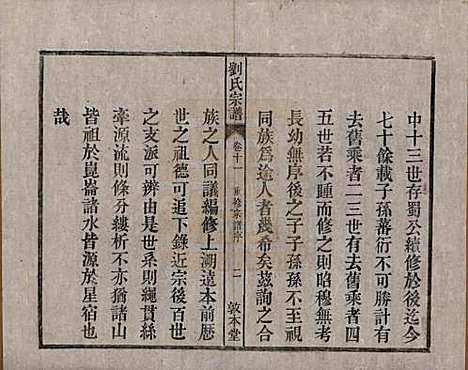 中十三世存蜀公續修於後迄今
七十餘載子孫蕃衍不可勝計有
去舊乘者二三世去舊乘者四
五世若不踵而修之則昭穆無考
長幼無序後之子子孫孫不至視
同族為途人者幾希矣茲詢之合
劉氏宗譜 卷十一 重修宗譜序 二 敦本堂
族之人同議編修上溯遠本前歷
世之祖德可追下錄近宗後百世
之支派可辨由是世系則繩貫絲
牽源流則條分縷析不亦猶諸山
皆祖於崑崙諸水皆源於星宿也
哉